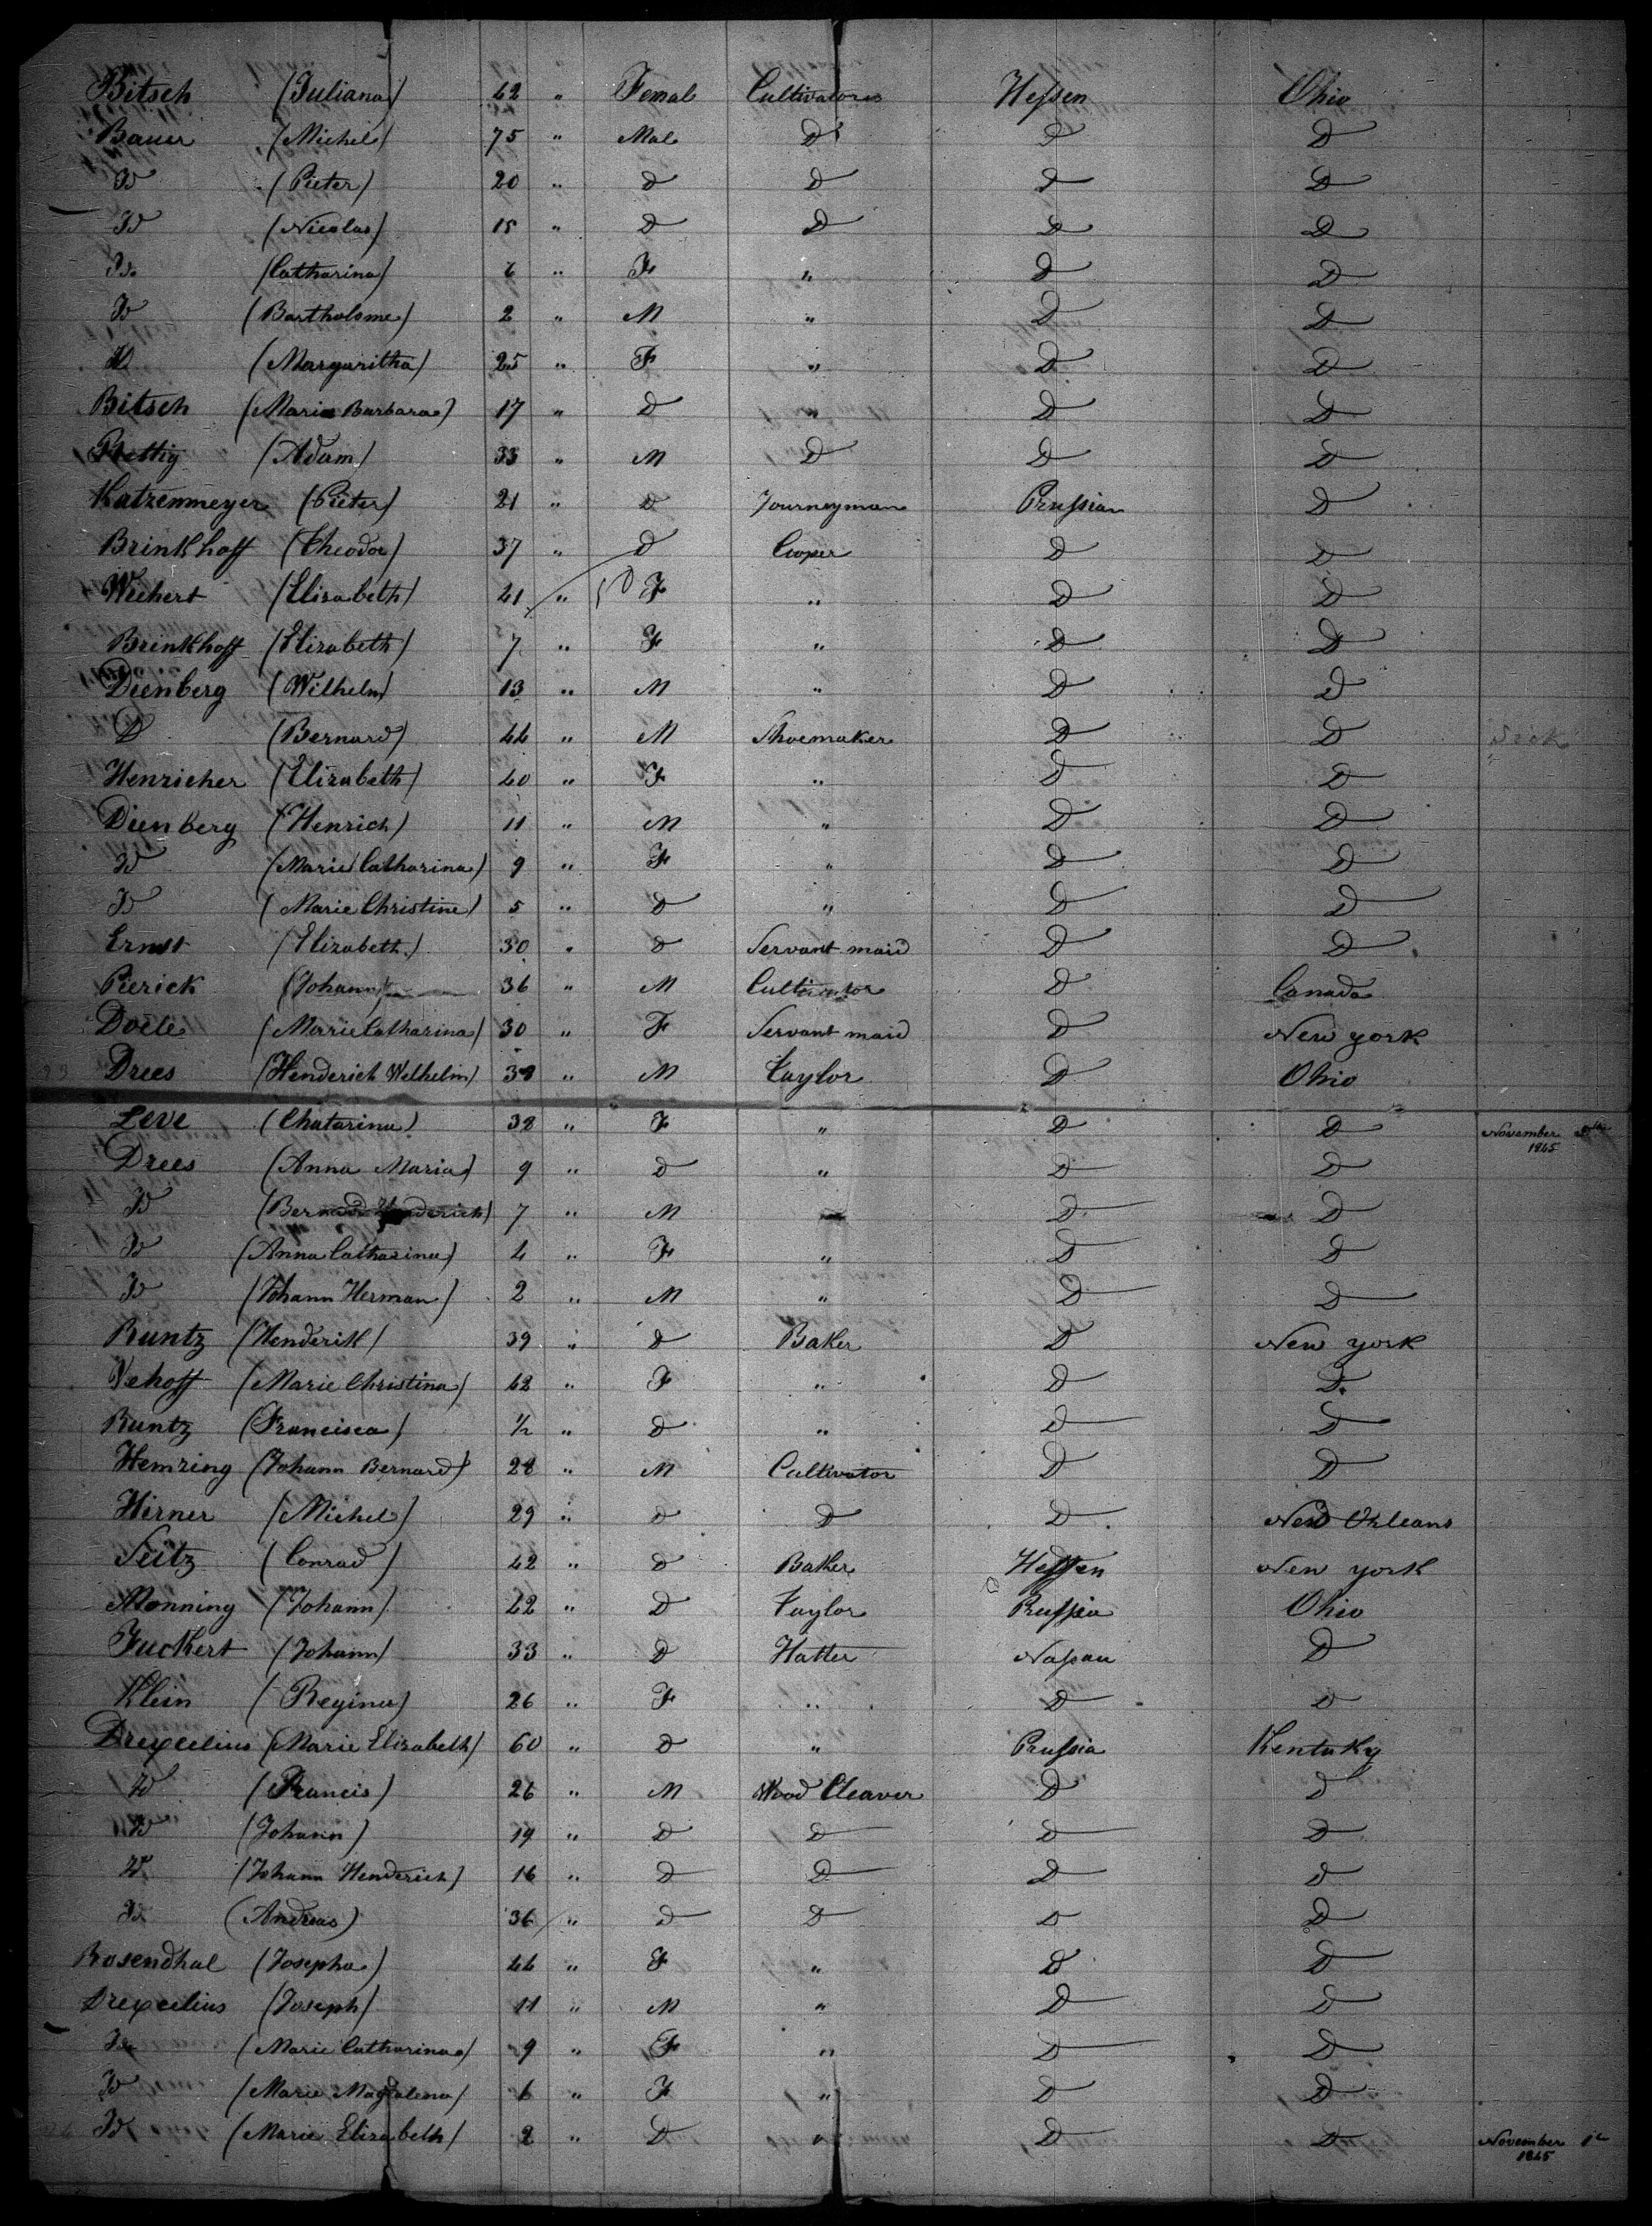 Bitsch (Juliana) 42 " Femal Cultivatores Hessen Ohio
Bauer (Michel) 75 " Male D D D
Id (Pieter) 20 " D D D D
Id (Nicolas) 15 " D D D D
Id (Catharina) 6 " F " D D
Id (Bartholome) 2 " M " D D
Id (Margaritha) 25 " F " D D
Bitsch (Maria Barbara) 17 " D " D D
Rettig (Adam) 33 " M D D D
Katzenmeyer (Pieter) 21 " D Journeyman Prussian D
Brinkhoff (Theodor) 37 " D Cooper D D
Wiehert (Elizabeth) 21 " F " D D
Brinkhoff (Elizabeth) 7 " F " D D
Dienberg (Wilhelm) 13 " M " D D
D (Bernard) 44 " M Shoemaker D D
Henricher (Elizabeth) 40 " F " D D
Dienberg (Henrich) 11 " M " D D
Id (Marie Catharina) 9 " F " D D
Id (Marie Christine) 5 " D " D D
Ernst (Elizabeth) 30 " D Servant maid D D
Pierick (Johann) 36 " M Cultivator D Canada
Doele (Marie Catharina) 30 " F Servant maid D New york
Drees (Henderich Welhelm) 38 " M Taylor D Ohio
Leve (Chatarina) 38 " F " D D November 1845
Drees (Anna Maria) 9 " D " D D
Id (Bernard Henderich) 7 " M " D D
Id (Anna Catharina) 4 " F " D D
Id (Johann Herman) 2 " M " D D
Runtz (Henderik) 39 " D Baker D New york
Vehoff (Marie Christina) 42 " F " D D
Runtz (Francisca) 1/2 " D " D D
Hemring (Johann Bernard) 28 " M Cultivator D D
Hirner (Michel) 29 " D D D New Orleans
Seitz (Conrad) 42 " D Baker Hessen New york
Monning (Johann) 22 " D Taylor Prussia Ohio
Juckert (Johann) 33 " D Hatter Nassau D
Klein (Regina) 26 " F " D D
Drexelius (Marie Elizabeth) 60 " D " Prussia Kentuky
Id (Francis) 26 " M Wood Cleaver D D
Id (Johann) 19 " D D D D
Id (Johann Henderich) 16 " D D D D
Id (Andreas) 36 " D D D D
Rosendhal (Josepha) 44 " F " D D
Drexelius (Joseph) 11 " M " D D
Id (Marie Catharina) 9 " F " D D
Id (Marie Magdalena) 6 " F " D D
Id (Marie Elizabeth) 2 " D " D D November 1845